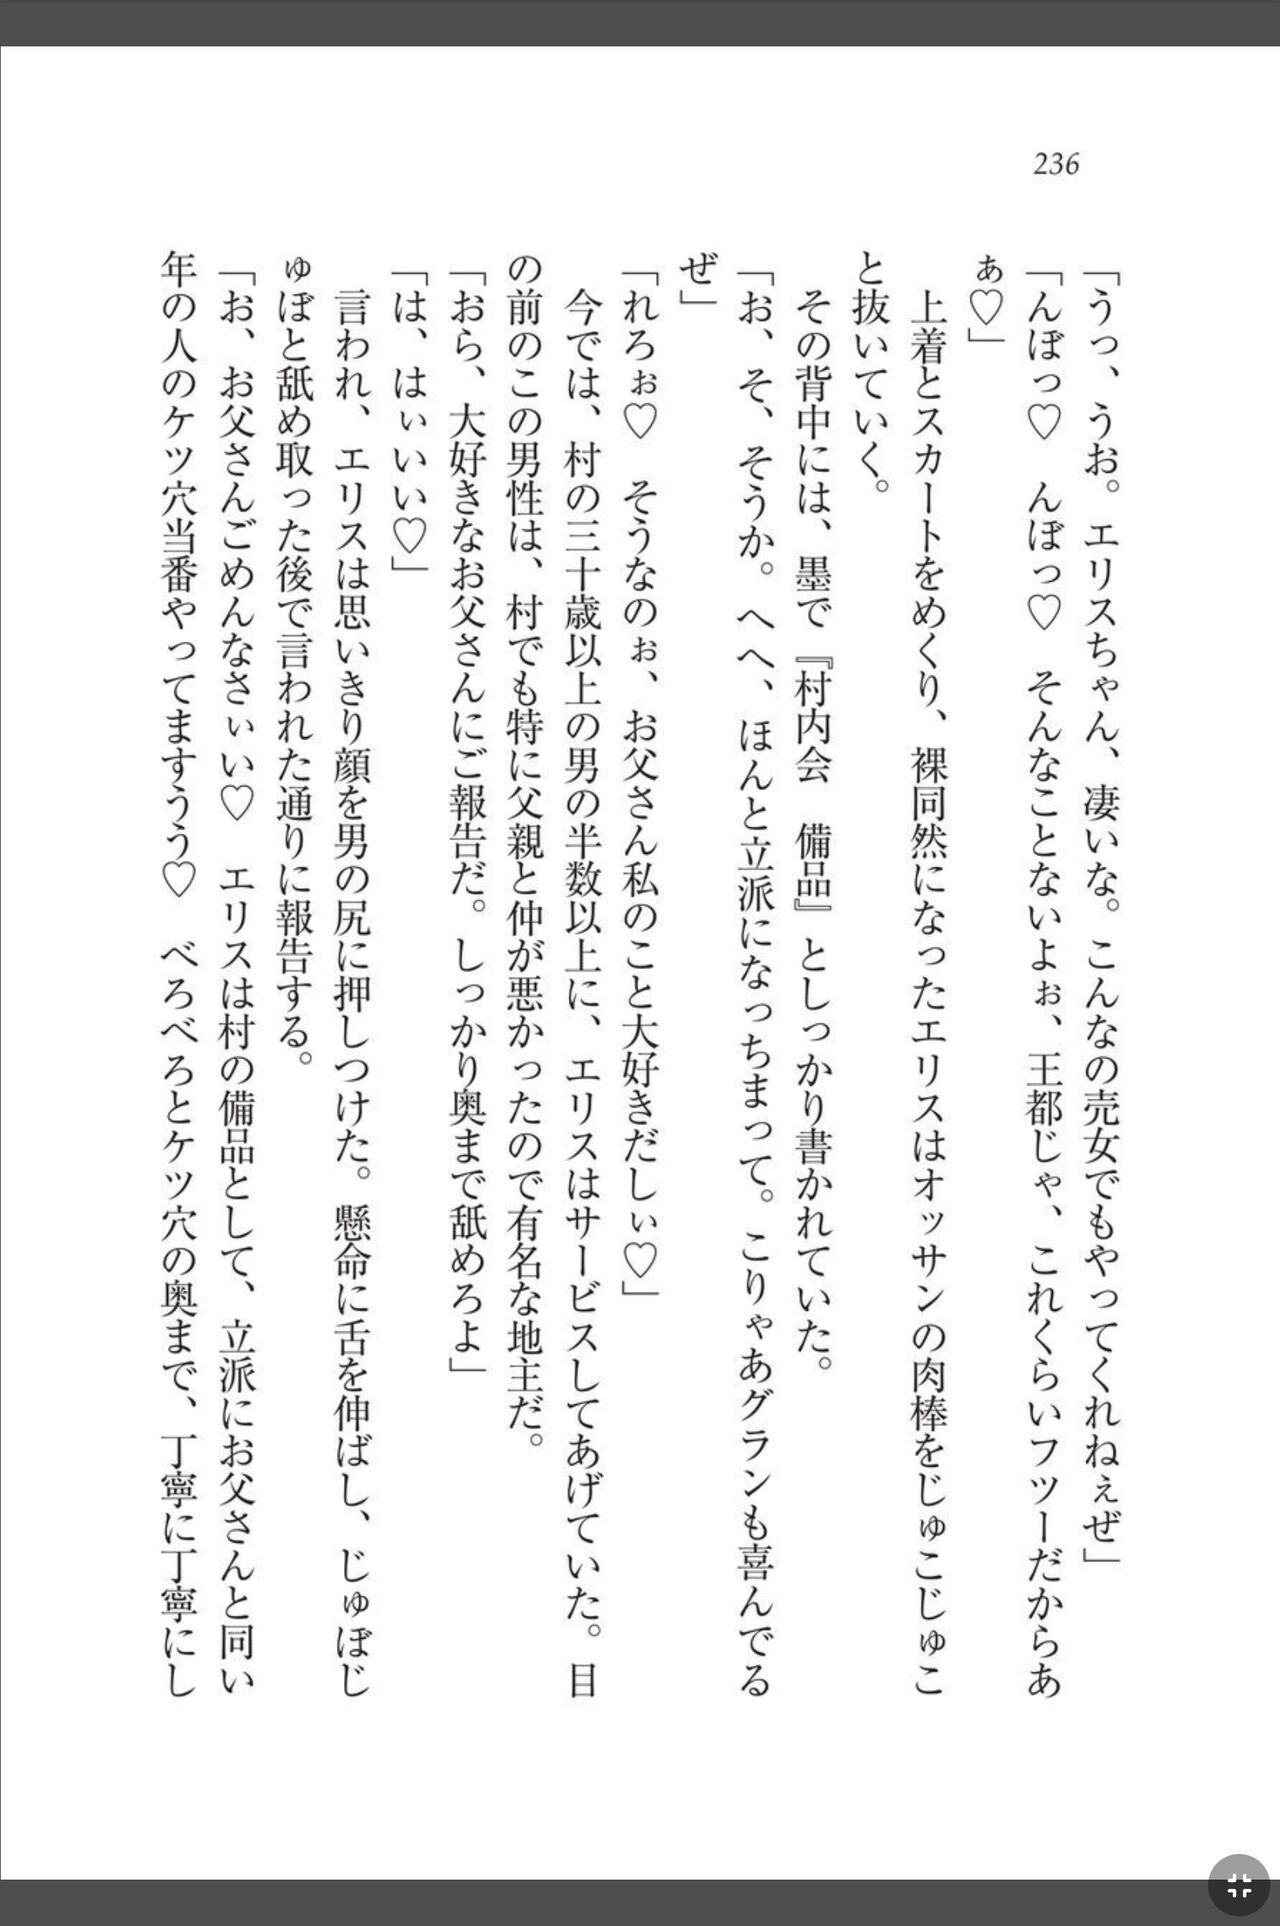 236
「うっ、うお。エリスちゃん、凄いな。こんなの売女でもやってくれねぇぜ」
「んぼっ♡　んぼっ♡　そんなことないよぉ、王都じゃ、これくらいフツーだからあ
ぁ♡」
　上着とスカートをめくり、裸同然になったエリスはオッサンの肉棒をじゅこじゅこ
と抜いていく。
　その背中には、墨で『村内会　備品』としっかり書かれていた。
「お、そ、そうか。へへ、ほんと立派になっちまって。こりゃあグランも喜んでる
ぜ」
「れろぉ♡　そうなのぉ、お父さん私のこと大好きだしぃ♡」
　今では、村の三十歳以上の男の半数以上に、エリスはサービスしてあげていた。目
の前のこの男性は、村でも特に父親と仲が悪かったので有名な地主だ。
「おら、大好きなお父さんにご報告だ。しっかり奥まで舐めろよ」
「は、はぃいい♡」
　言われ、エリスは思いきり顔を男の尻に押しつけた。懸命に舌を伸ばし、じゅぼじ
ゅぼと舐め取った後で言われた通りに報告する。
「お、お父さんごめんなさぃい♡　エリスは村の備品として、立派にお父さんと同い
年の人のケツ穴当番やってますうう♡　べろべろとケツ穴の奥まで、丁寧に丁寧にし